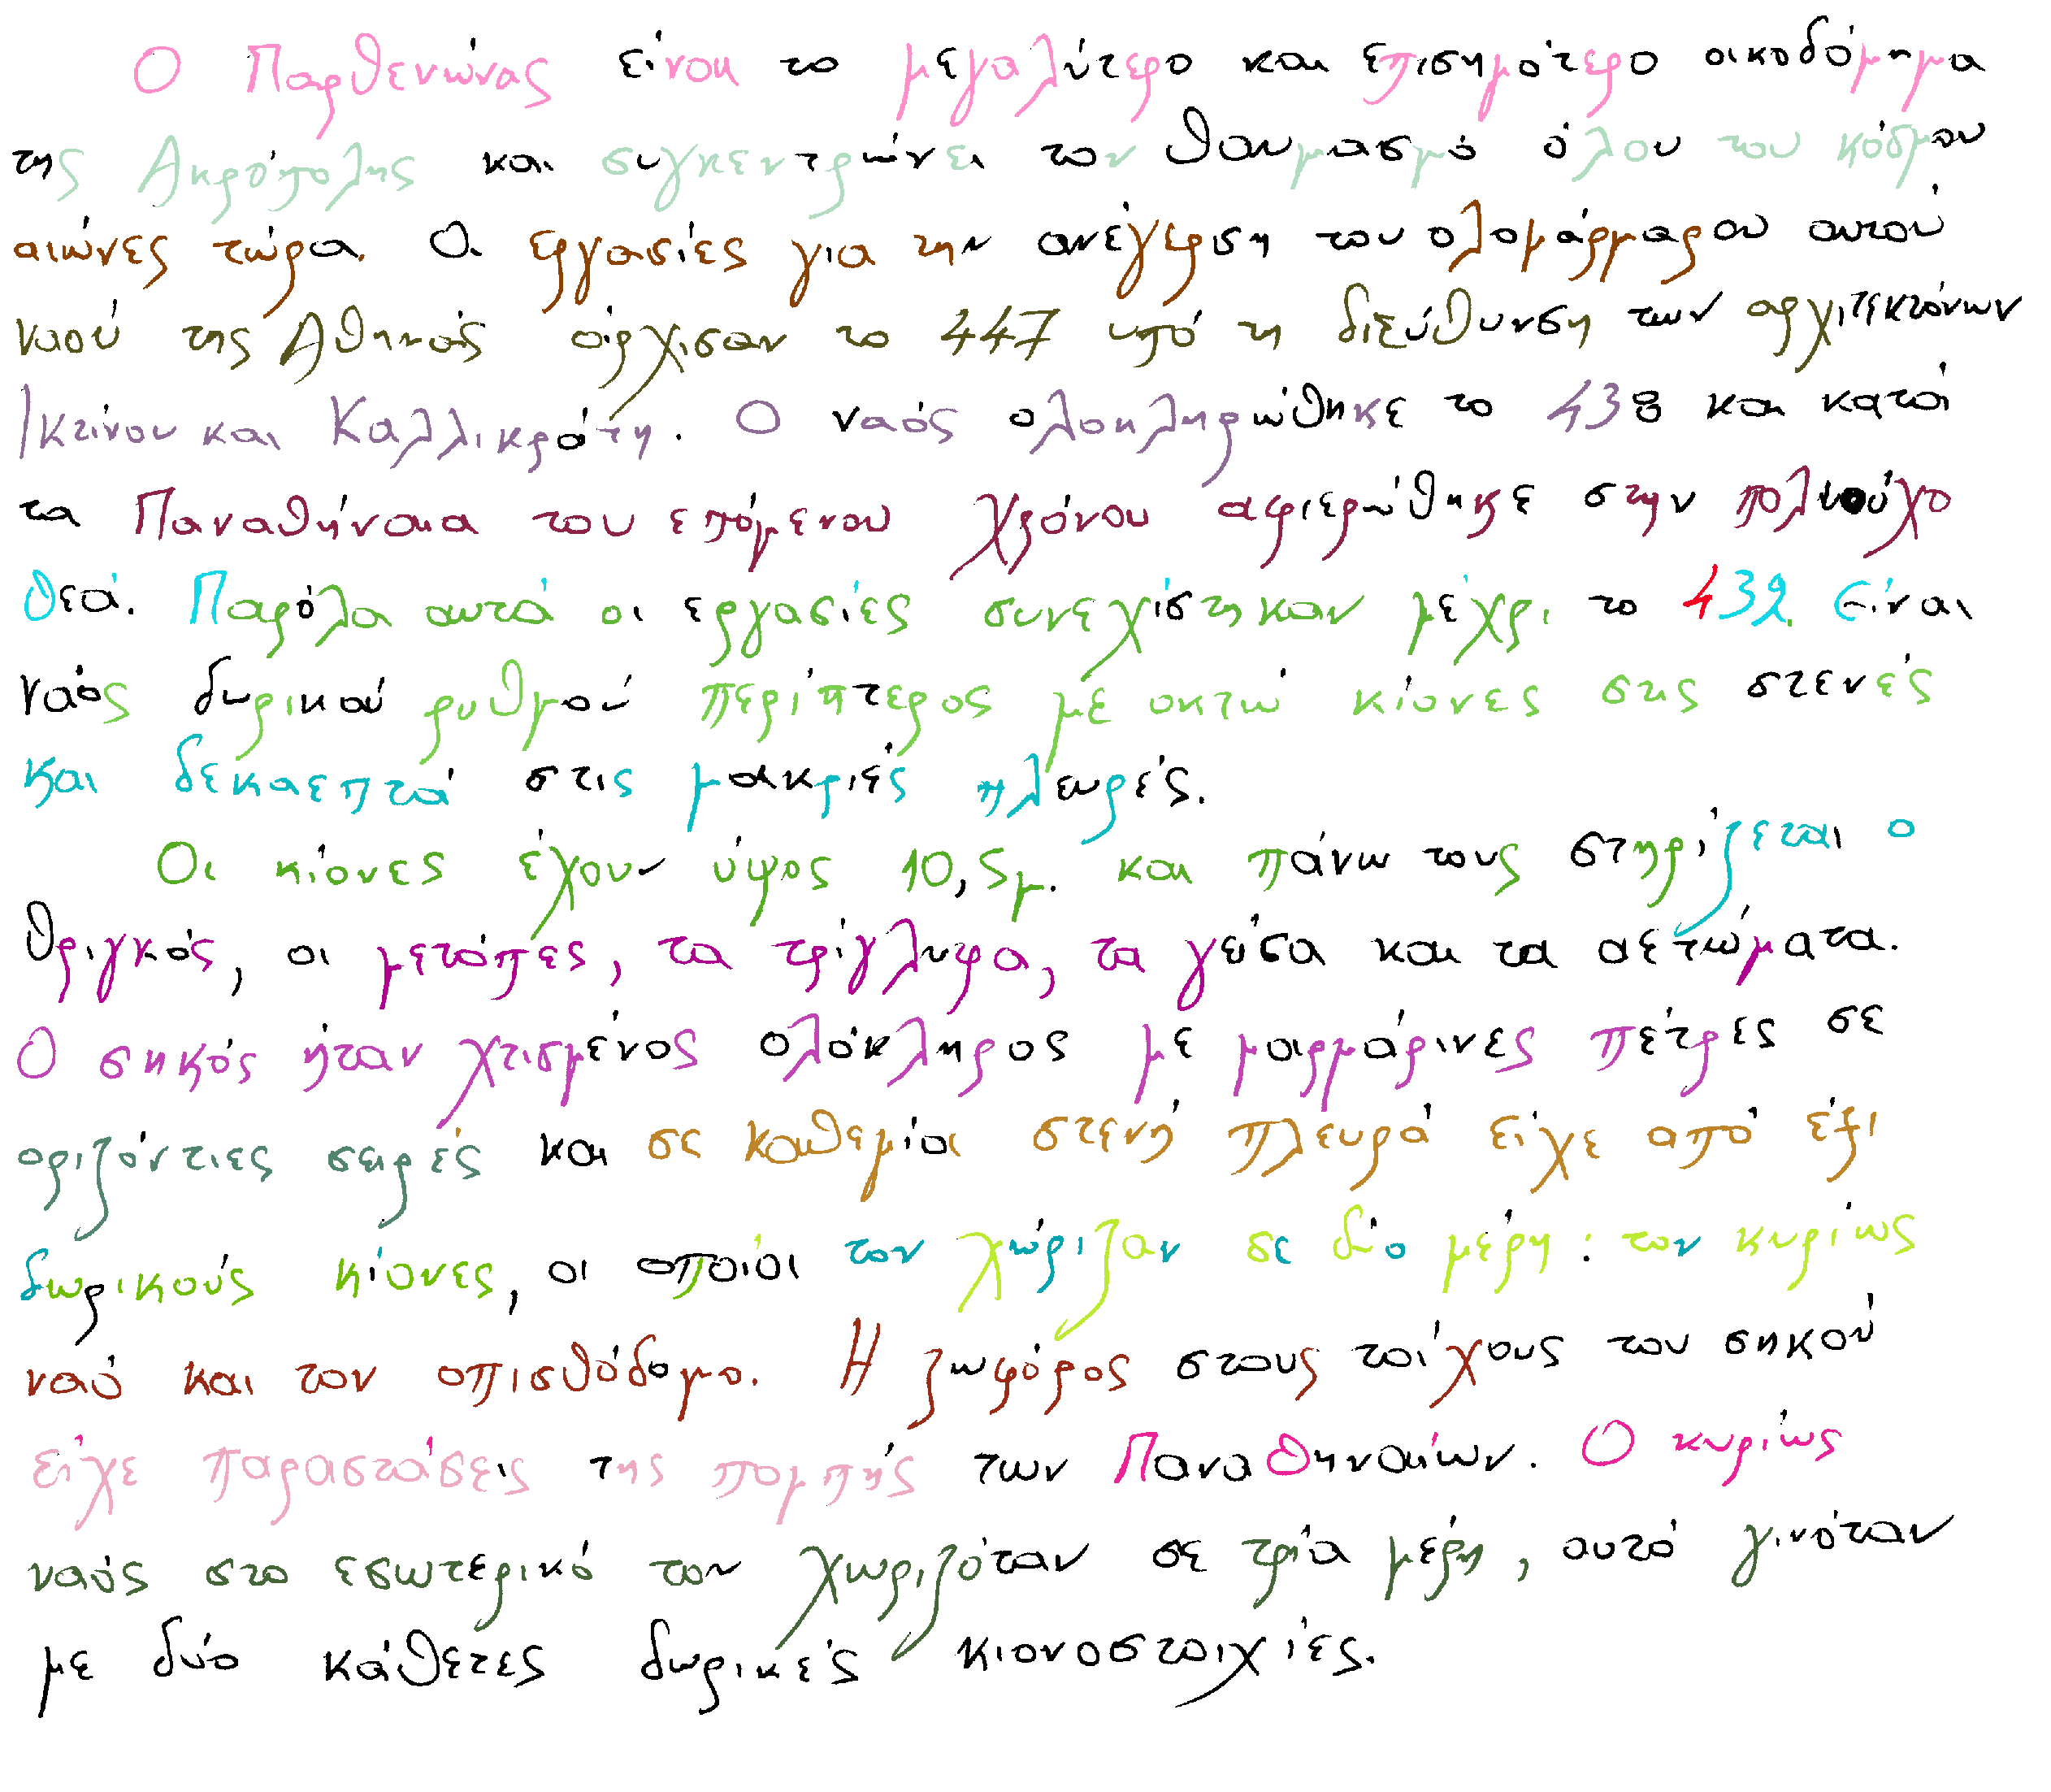 Ο Παρθενώνας είναι το μεγαλύτερο και επισημότερο οικοδόμημα
της Ακρόπολης και συγκεντρώνει τον θαυμασμό όλου του κόσμου
αιώνες τώρα. Οι εργασίες για την ανέγερση του ολομάρμαρου αυτού
ναού της Αθηνάς άρχισαν το 447 υπό τη διεύθυνση των αρχιτεκτόνων
Ικτίνου και Καλλικράτη. Ο ναός ολοκληρώθηκε το 438 και κατά
τα Παναθήναια του επόμενου χρόνου αφιερώθηκε στην πολιούχο
θεά. Παρόλα αυτά οι εργασίες συνεχίστηκαν μέχρι το 432. Είναι
ναός δωρικού ρυθμού περίπτερος με οκτώ κίονες στις στενές
και δεκαεπτά στις μακριές πλευρές.
Οι κίονες έχουν ύψος 10,5μ. και πάνω τους στηρίζεται ο
θριγκός, οι μετόπες, τα τρίγλυφα, τα γείσα και τα αετώματα.
Ο σηκός ήταν χτισμένος ολόκληρος με μαρμάρινες πέτρες σε
οριζόντιες σειρές και σε καθεμία στενή πλευρά είχε από έξι
δωρικούς κίονες, οι οποίοι τον χώριζαν σε δύο μέρη: τον κυρίως
ναό και τον οπισθόδομο. Η ζωφόρος στους τοίχους του σηκού
είχε παραστάσεις της πομπής των Παναθηναίων. Ο κυρίως
ναός στο εσωτερικό του χωριζόταν σε τρία μέρη, αυτό γινόταν
με δύο κάθετες δωρικές κιονοστοιχίες.